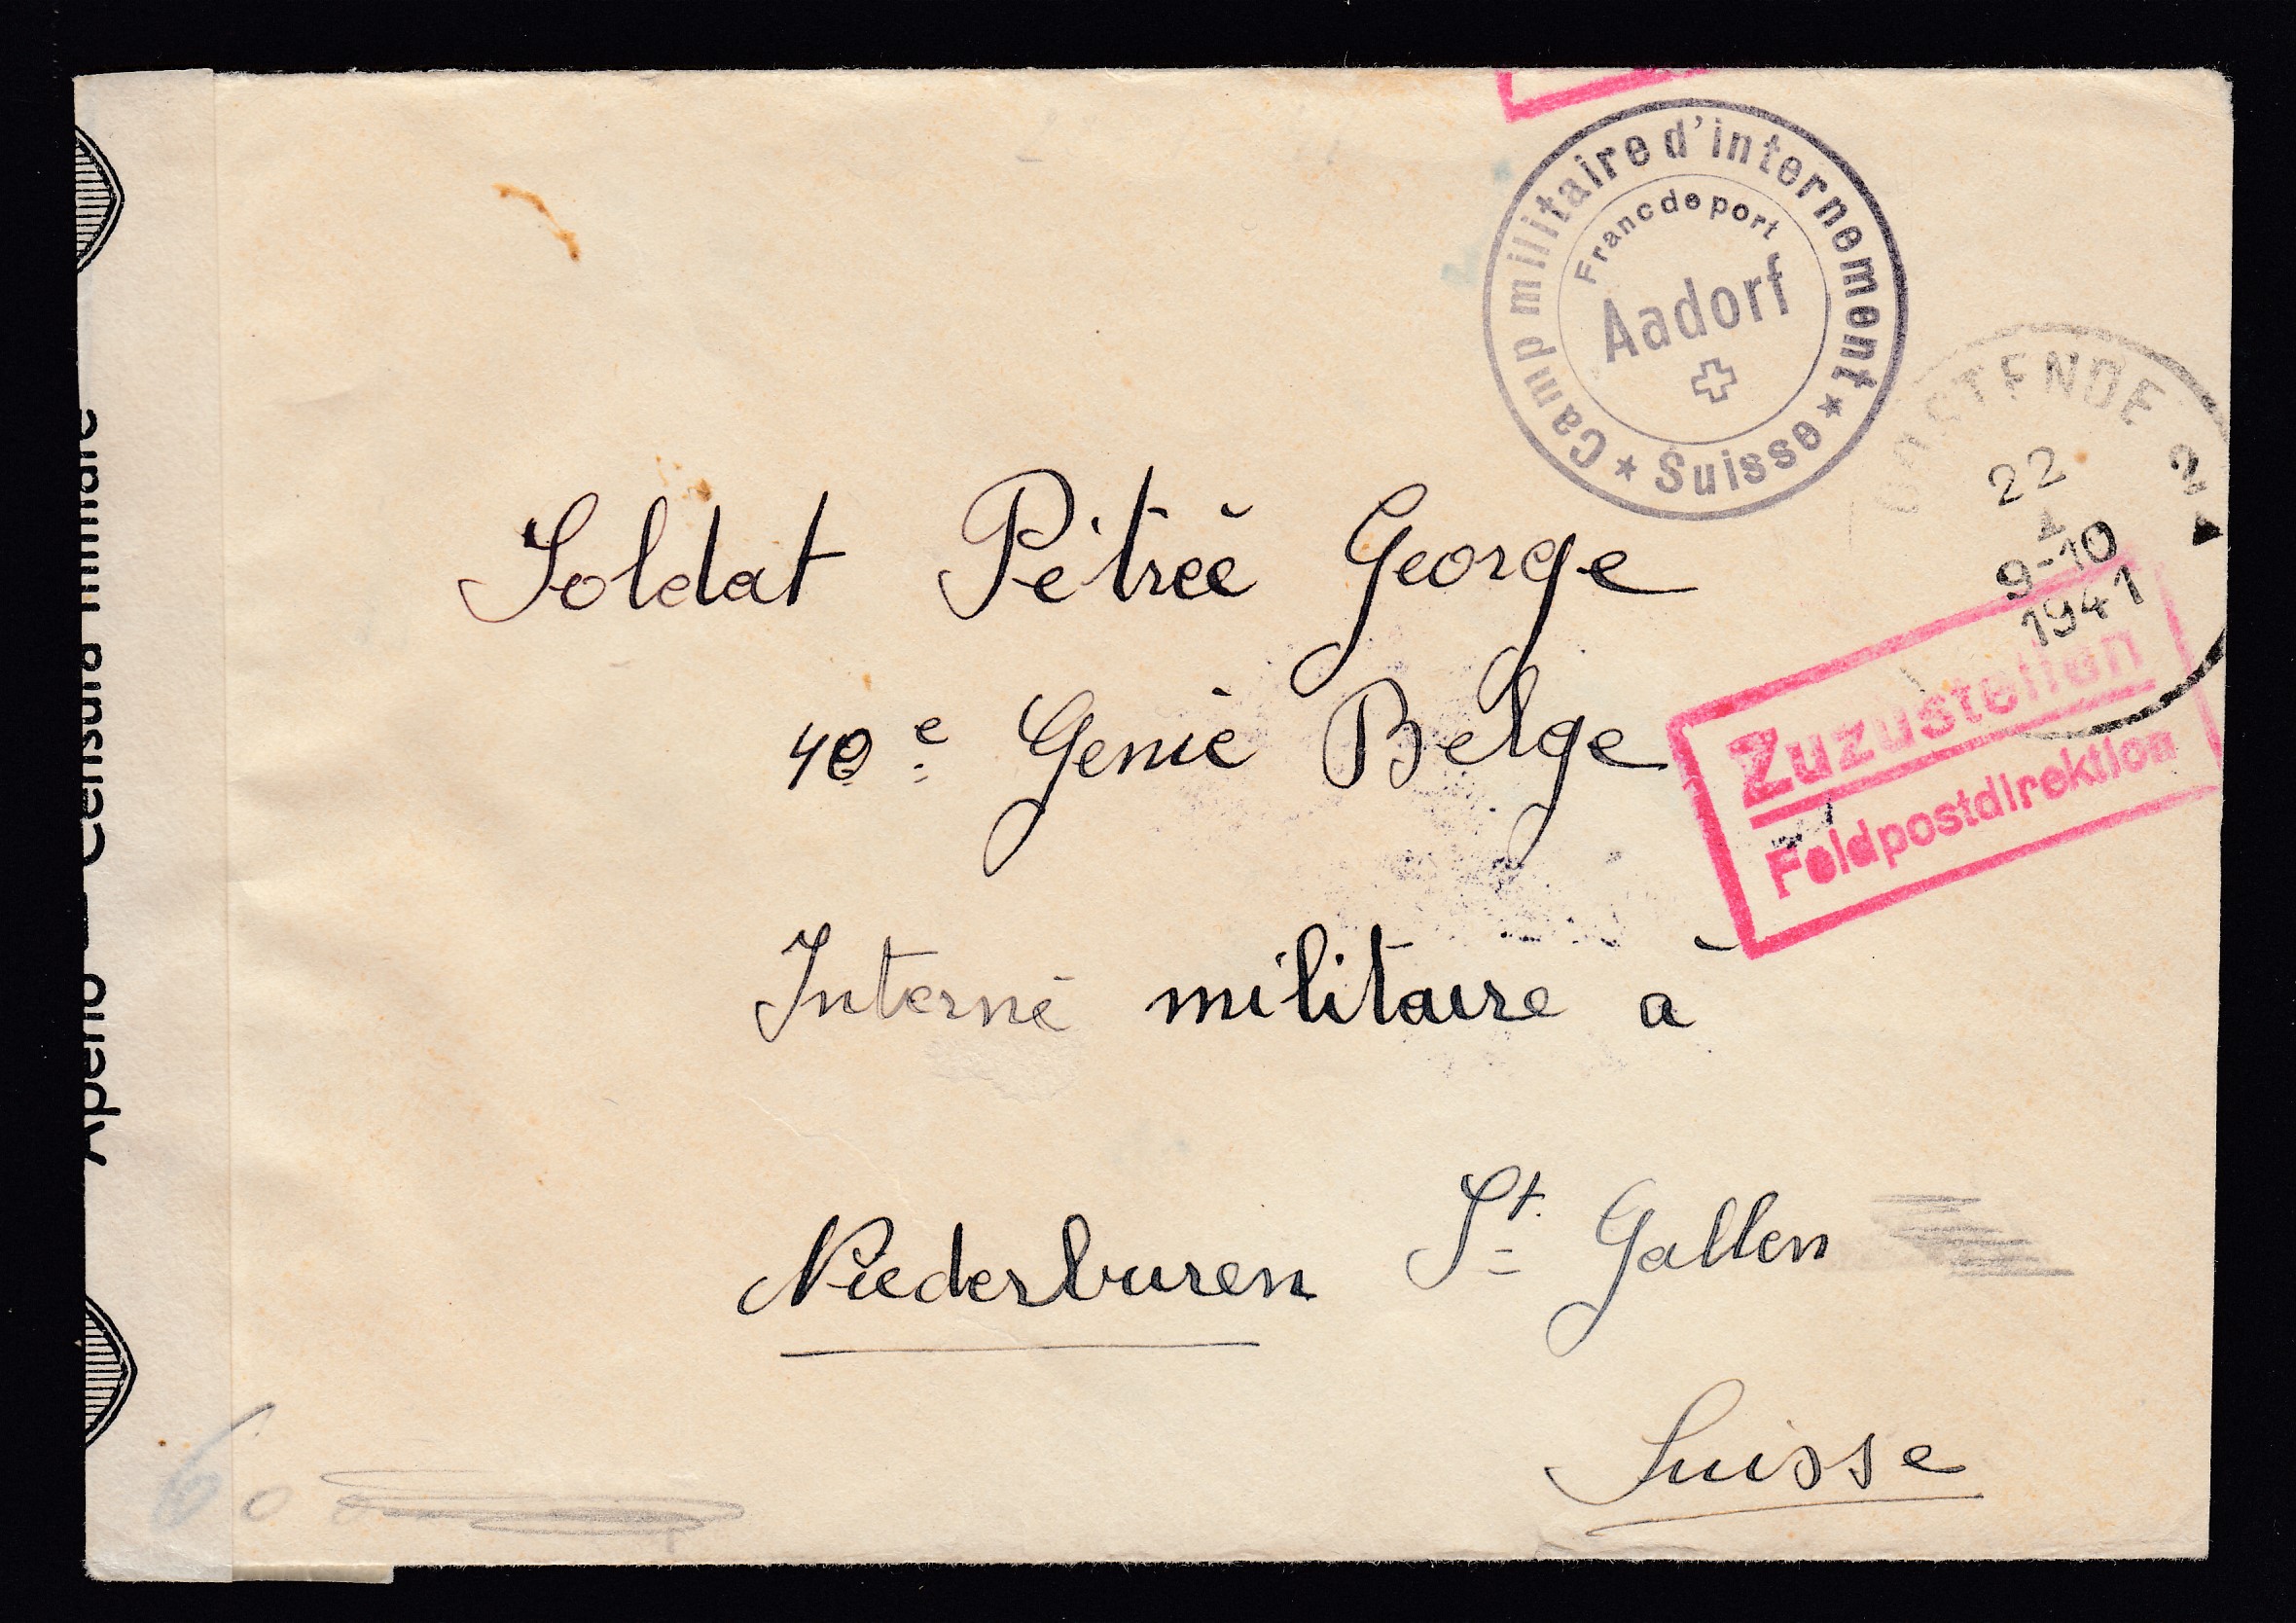 Camp militaire d'internement
★ Suisse ★
Franc de port
Aadorf
OOSTENDE 2
22
9-10
1941
Zuzustellen
Feldpostdirektion
Soldat Pétrée George
40e Genie Belge
Interné militaire à
Niederburen St. Gallen
Suisse
Aperto — Censura militare